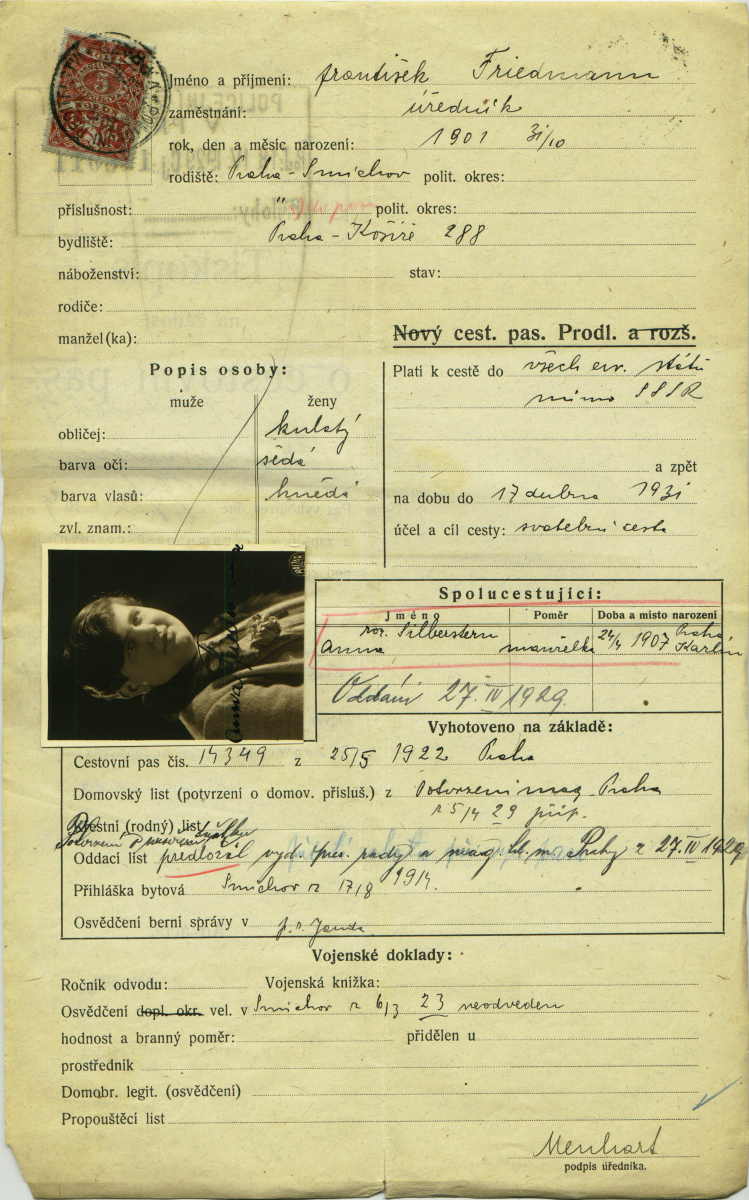 Jméno a příjmení: František Friedmann
zaměstnání: úředník
rok, den a měsíc narození: 1901 31/10
rodiště: Praha-Smíchov polit. okres:
příslušnost: " polit. okres:
bydliště: Praha-Košíře 288
náboženství: stav:
rodiče:
manžel(ka):
Nový cest. pas. Prodl. a rozš.
Popis osoby:
muže ženy
obličej: kulatý
barva očí: šedá
barva vlasů: hnědá
zvl. znam.:
Platí k cestě do všech evr. států
mimo SSSR
a zpět
na dobu do 17 dubna 1931
účel a cíl cesty: svatební cesta
Spolucestující:
Jméno Poměr Doba a místo narození
roz. Silberstern
Anna manželka 24/4 1907 Praha Karlín
Oddáni 27.IV 1929.
Vyhotoveno na základě:
Cestovní pas čís. 14349 z 25/5 1922 Praha
Domovský list (potvrzení o domov. přísluš.) z Potvrzení mag. Praha
z 5/4 29
Křestní (rodný) list
Oddací list předložil vyd. rady z 27.IV 1929
Přihláška bytová Smíchov z 17/8 1914.
Osvědčení berní správy v
Vojenské doklady:
Ročník odvodu: Vojenská knížka:
Osvědčení dopl. okr. vel. v Smíchov z 6/3 23 neodveden
hodnost a branný poměr: přidělen u
prostředník
Domobr. legit. (osvědčení)
Propouštěcí list
Menhart
podpis úředníka.